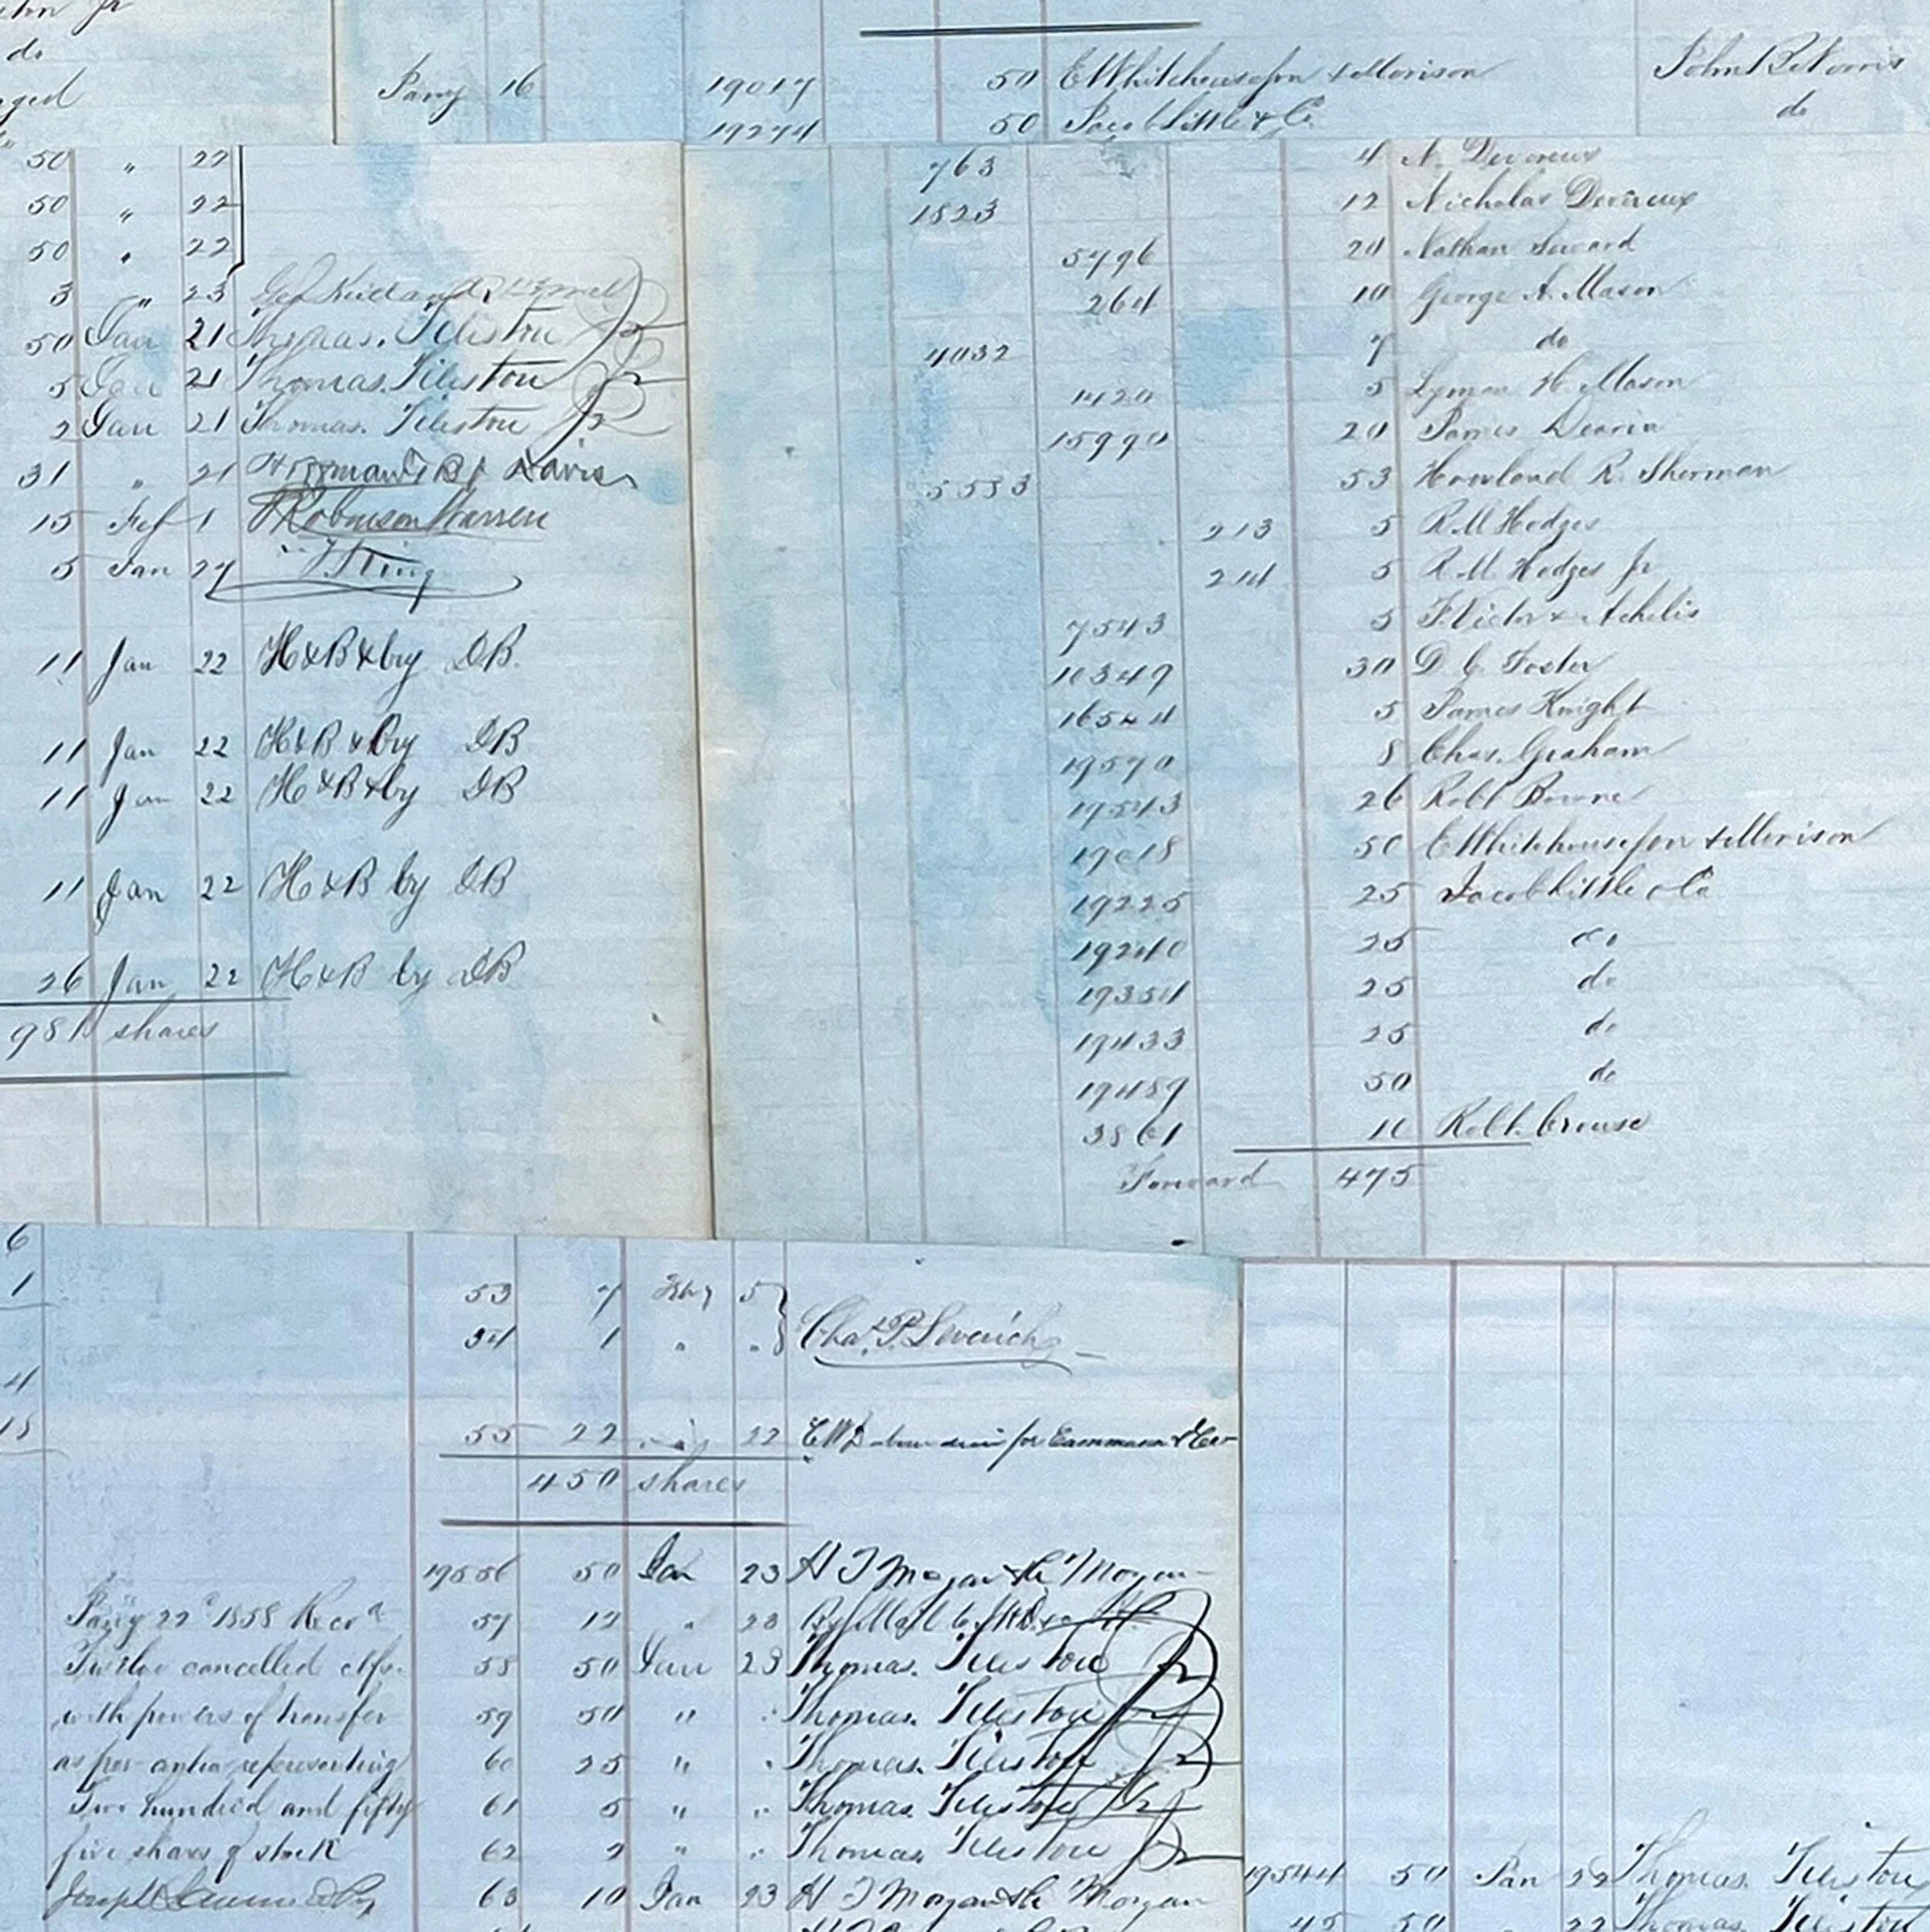 do
Jany 16 19017 50 E Whitehouse Son & Morison John B Norris
19274 50 Jacob Little & Co do
50 " 22 763 4 N. Devereux
50 " 22 1823 12 Nicholas Devereux
50 " 22 5796 20 Nathan Seward
3 " 23 264 10 George A. Mason
50 Jan 21 Thomas. Tileston 4032 7 do
5 Jan 21 Thomas. Tileston 1420 5 Lyman H. Mason
2 Jan 21 Thomas. Tileston 15990 20 James Dearin
31 " 21 Davis 5583 53 Howland R. Sherman
15 Feb 1 Robinson Warren 213 5 R. M Hodges
5 Jan 27 J King 214 5 R. M. Hodges Jr
7543 5 F. Victor & Achelis
11 Jan 22 H&B by DB. 10349 30 D. C. Foster
16544 5 James Knight
11 Jan 22 H&B by DB 19570 8 Chas. Graham
11 Jan 22 H&B by DB 19543 26 Robt Bowne
19018 50 E Whitehouse Son & Morison
11 Jan 22 H&B by DB 19225 25 Jacob Little & Co
19240 25 do
26 Jan 22 H&B by DB 19354 25 do
981 shares 19433 25 do
19489 50 do
3861 10 Robt. Crouse
Forward 475
6
1 53 7 Feby 5
54 1 " " Chas. P. Leverich
4
18 55 22 22 for Cammann & Co
450 shares
19556 50 Jan 23 H T Morgan
Jany 22d 1858 Recd 57 12 " 23
Twelve cancelled ctfs. 58 50 Jan 23 Thomas. Tileston
with powers of transfer 59 50 " " Thomas. Tileston
as per contra representing 60 25 " " Thomas. Tileston
Two hundred and fifty 61 5 " " Thomas. Tileston
five shares of stock 62 2 " " Thomas. Tileston
63 10 Jan 23 H T Morgan
19544 50 Jan 22 Thomas. Tileston
45 50 22 Thomas Tileston